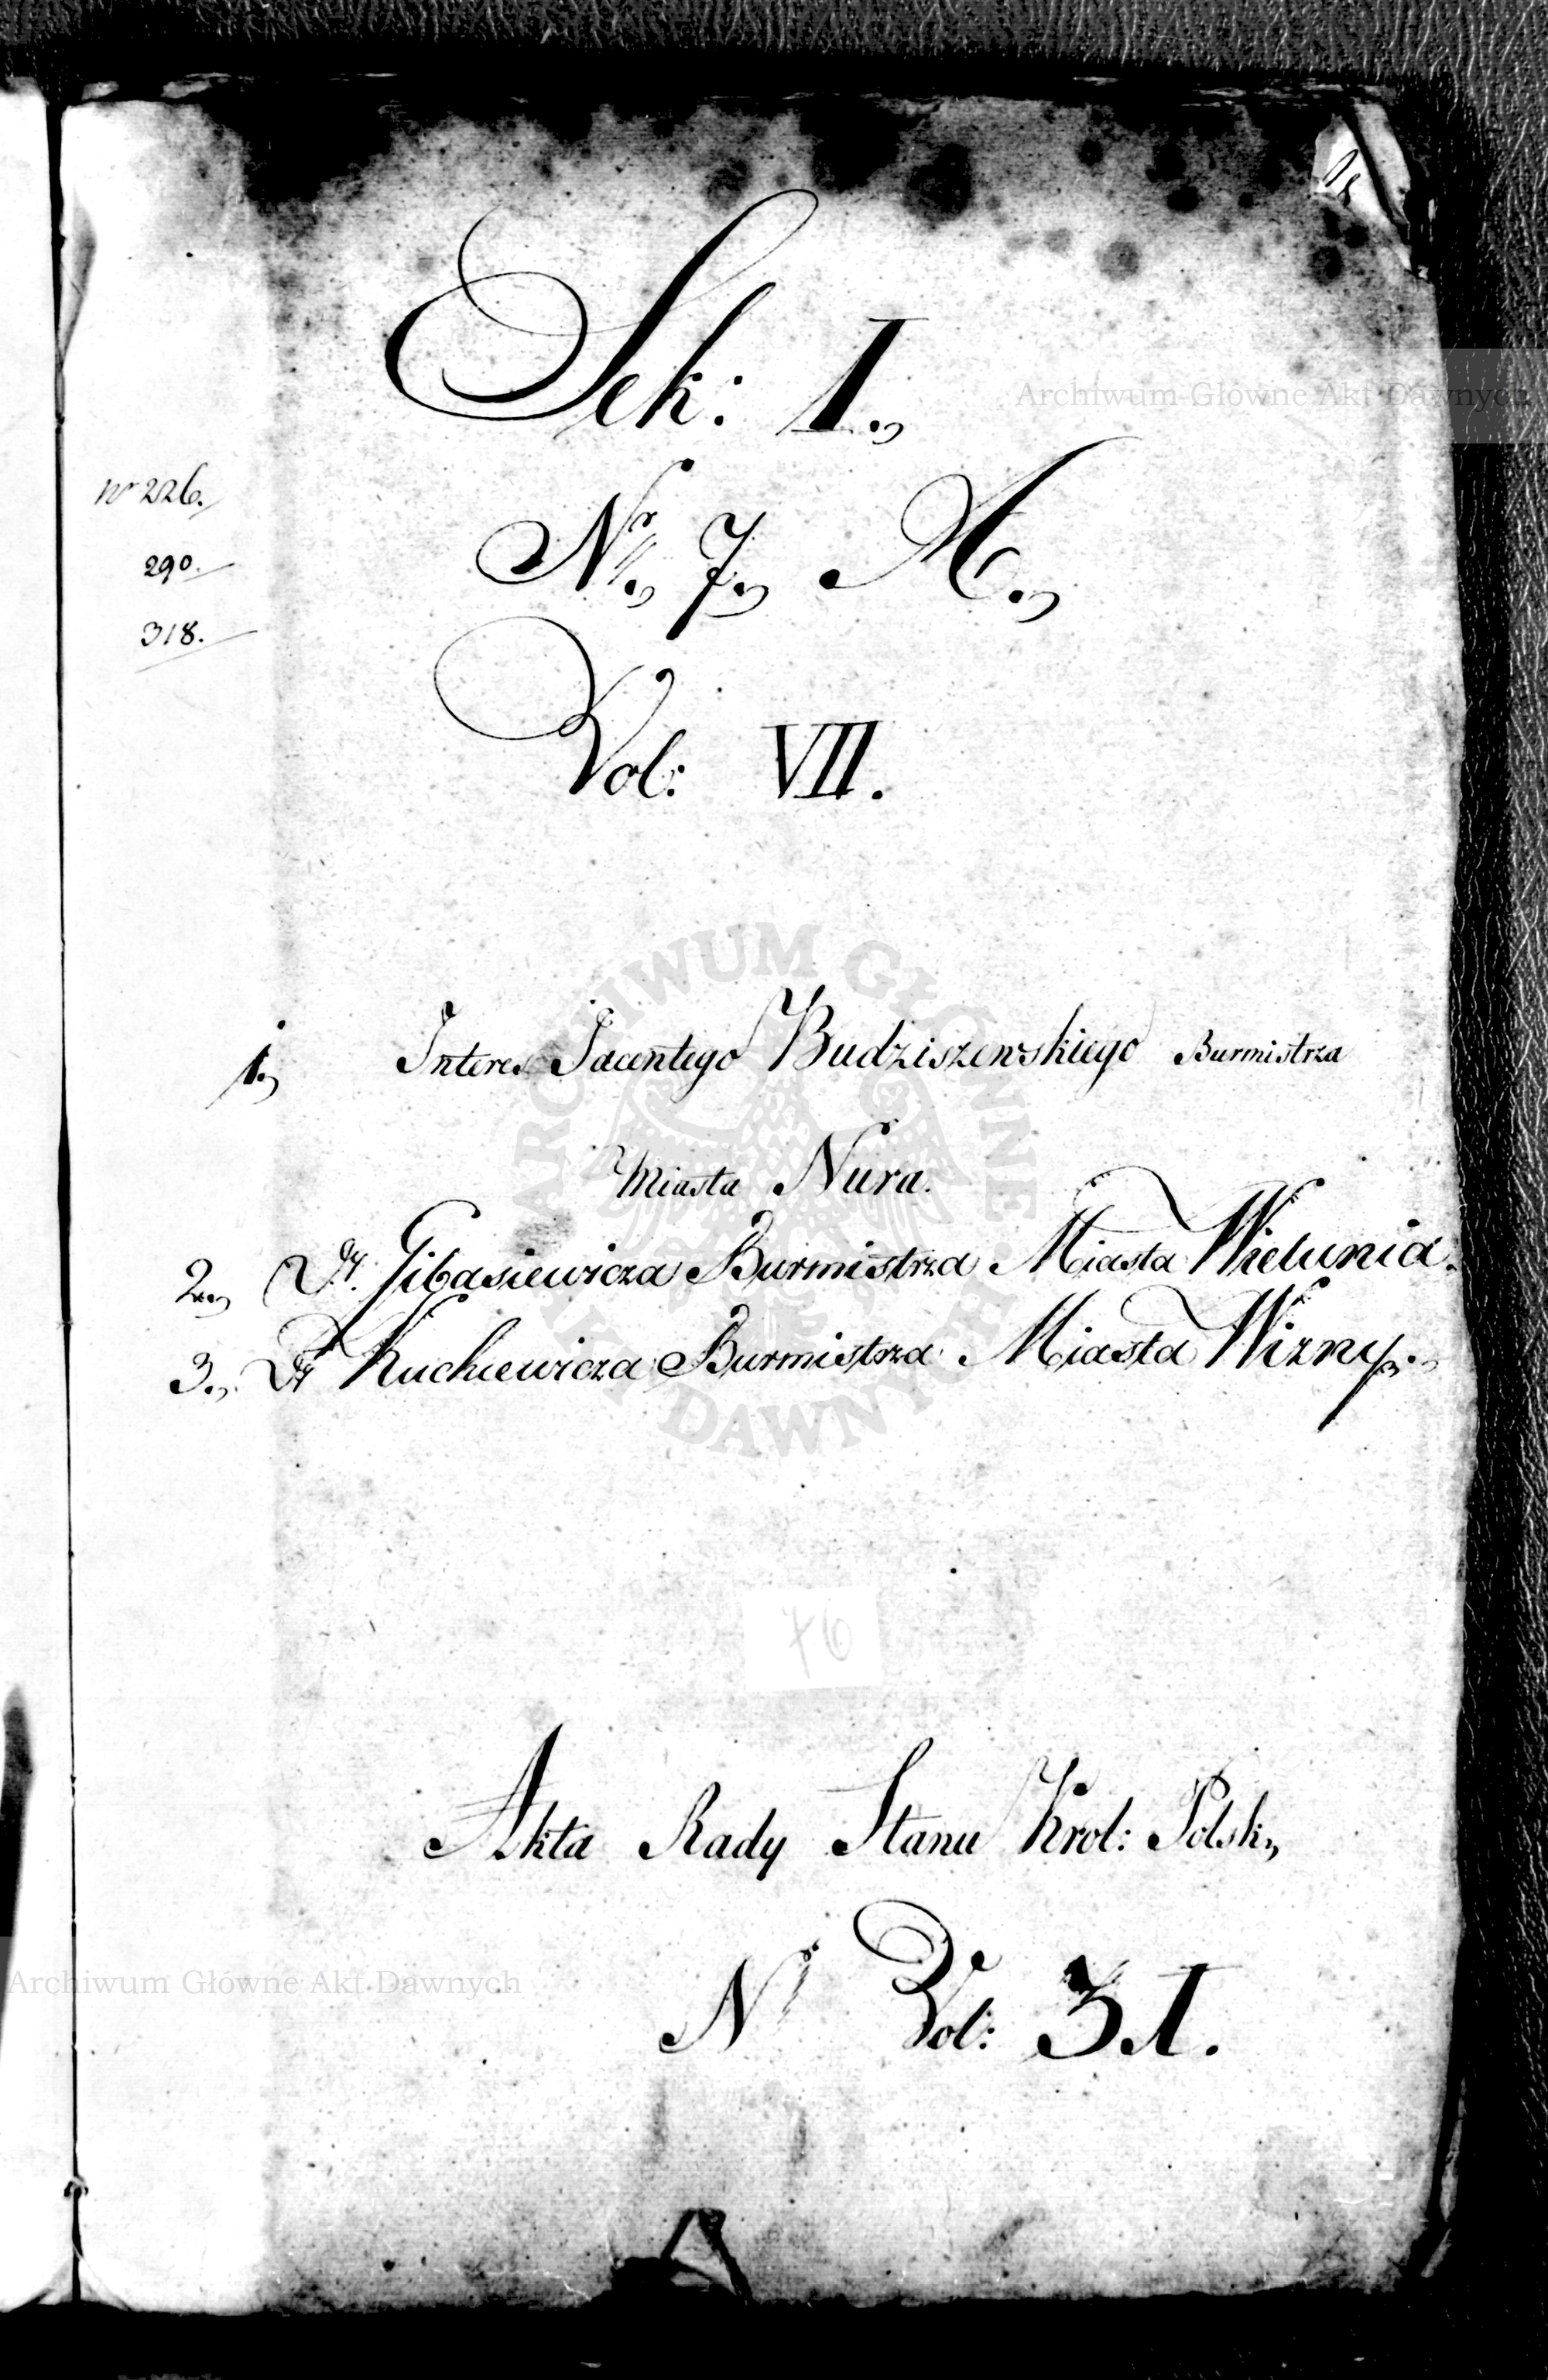 Sek: I.,
Nr., 7., A.,
Vol: VII.
Nr 226.
290.
318.
1., Interes Jacentego Budziszewskiego Burmistrza
Miasta Nura.
2., Dt. Gibasiewicza Burmistrza Miasta Wielunia.
3., Dt Kuchcewicza Burmistrza Miasta Wizny.,
76
Akta Rady Stanu Krol: Polsk.,
Nr Vol: 31.
Archiwum Główne Akt Dawnych
ARCHIWUM GŁÓWNE AKT DAWNYCH
Archiwum Główne Akt Dawnych